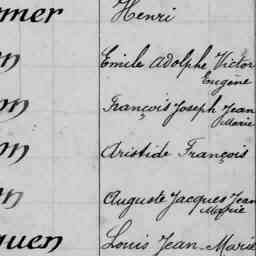 mer Henri
n Emile Adolphe Victor
Eugène
on François Joseph Jean
Marie
on Aristide François
n Auguste Jacques Jean
Marie
guen Louis Jean-Marie